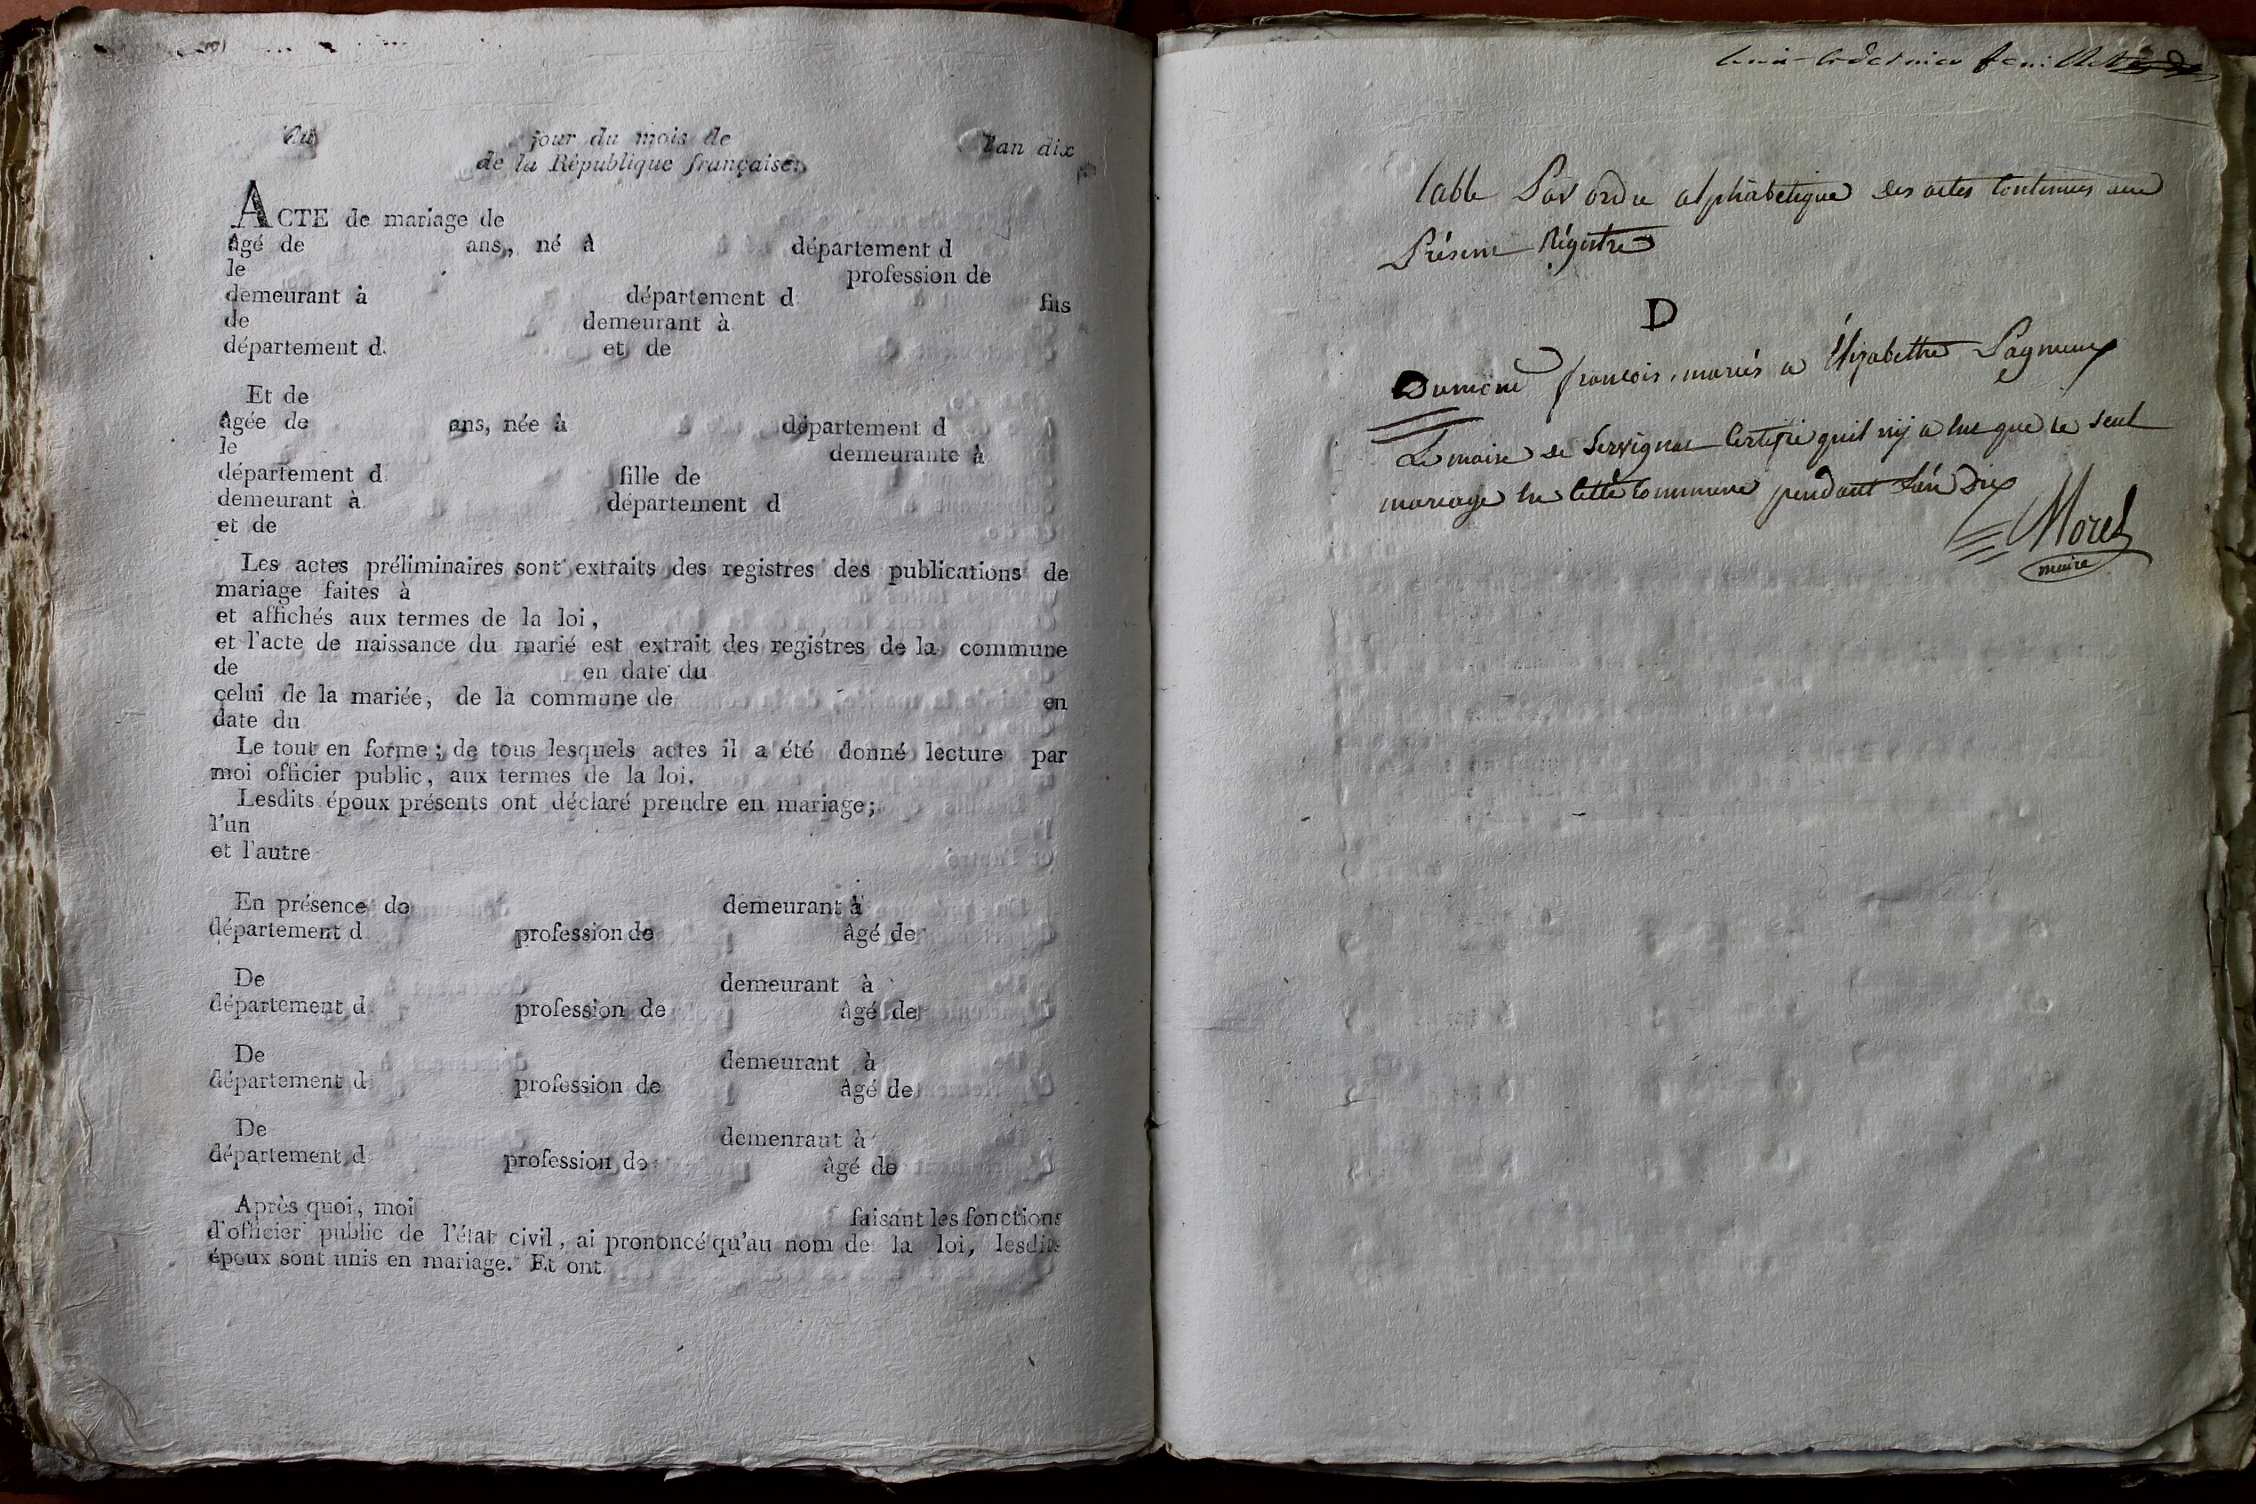 Du jour du mois de l'an dix
de la République française.
ACTE de mariage de
âgé de ans, né à département d
le profession de
demeurant à département d fils
de demeurant à
département d et de
Et de
âgée de ans, née à département d
le demeurante à
département d fille de
demeurant à département d
et de
Les actes préliminaires sont extraits des registres des publications de
mariage faites à
et affichés aux termes de la loi,
et l'acte de naissance du marié est extrait des registres de la commune
de en date du
celui de la mariée, de la commune de en
date du
Le tout en forme ; de tous lesquels actes il a été donné lecture par
moi officier public, aux termes de la loi.
Lesdits époux présents ont déclaré prendre en mariage ;
l'un
et l'autre
En présence de demeurant à
département d profession de âgé de
De demeurant à
département d profession de âgé de
De demeurant à
département d profession de âgé de
De demeurant à
département d profession de âgé de
Après quoi, moi faisant les fonctions
d'officier public de l'état civil, ai prononcé qu'au nom de la loi, lesdits
époux sont unis en mariage. Et ont
dernier feuillet
table Par ordre alphabétique des actes Contenus au
Présent Régistre
D
Dumont françois, mariés a Élizabethe Pagneux
Le maire de Servignat Certifie quil nÿ a eue que ce seul
mariage en Cette Commune pendant l'án Dix
Morel
maire